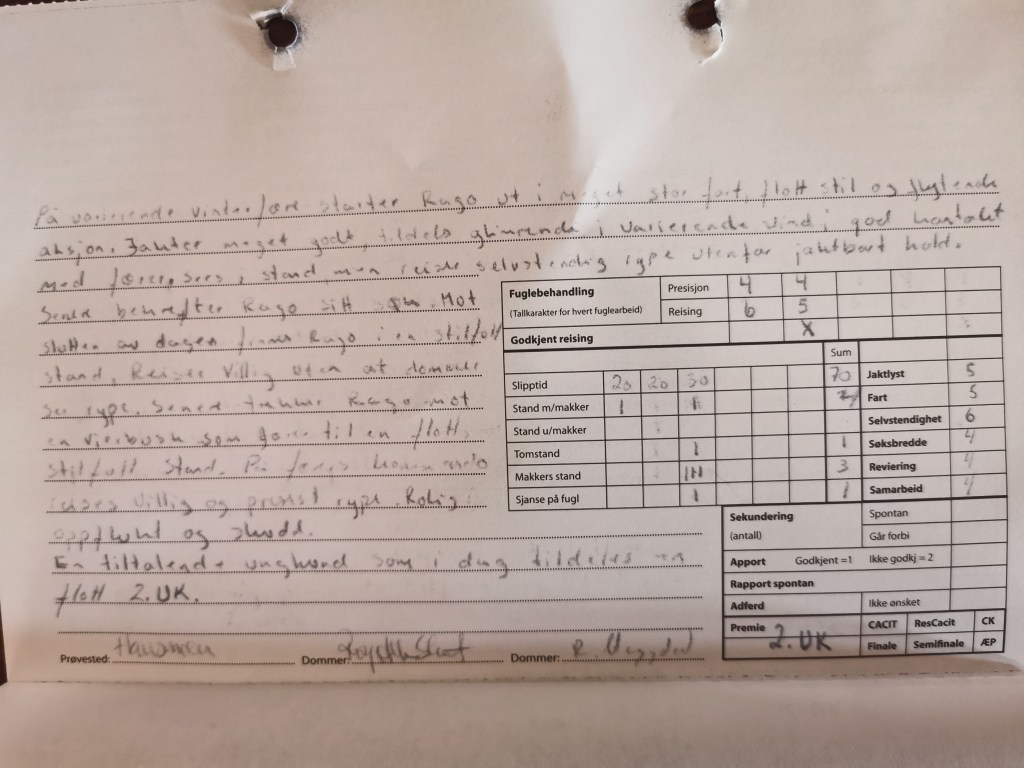 På varierende vinterføre starter Rago ut i meget stor fart, flott stil og flytende
aksjon. Jakter meget godt, tildels glimrende i varierende vind i god kontakt
med fører, sees i stand men reiser selvstendig rype utenfor jaktbart hold.
Senere bekrefter Rago sitt Mot
slutten av dagen finner Rago i en stilfull
stand, Reiser villig uten at dommede
ser rype. Senere trekker Rago mot
en vierbusk som fører til en flott,
stilfull stand. På førers kommando
reises villig og presist rype. Rolig i
oppflukt og skudd.
En tiltalende unghund som i dag tildeles en
flott 2. UK.
Fuglebehandling
(Tallkarakter for hvert fuglearbeid)
Presisjon 4 4
Reising 6 5
Godkjent reising X
Sum
Slipptid 20 20 30 70
Stand m/makker 1 1
Stand u/makker
Tomstand 1 1
Makkers stand 3
Sjanse på fugl 1 1
Jaktlyst 5
Fart 5
Selvstendighet 6
Søksbredde 4
Reviering 4
Samarbeid 4
Sekundering
(antall)
Spontan
Går forbi
Apport Godkjent =1 Ikke godkj = 2
Rapport spontan
Adferd Ikke ønsket
Premie 2. UK
CACIT ResCacit CK
Finale Semifinale ÆP
Prøvested: Dommer: Dommer: R.